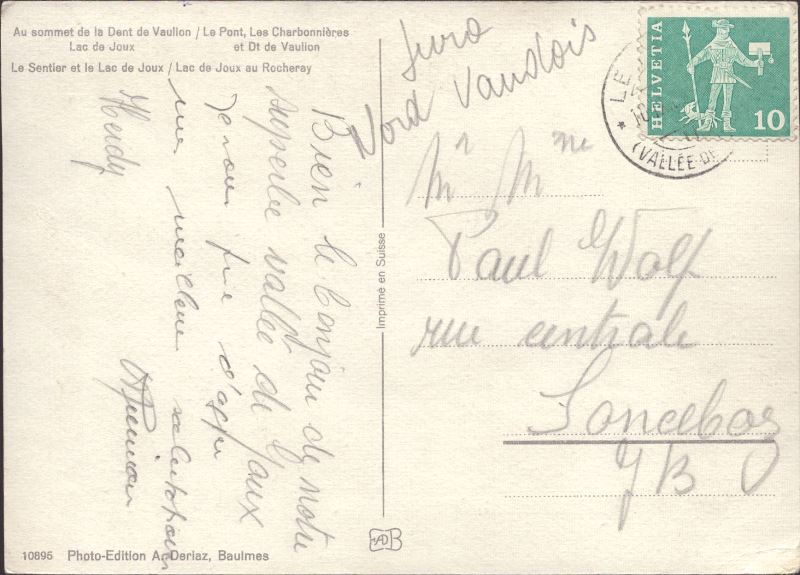 Au sommet de la Dent de Vaulion / Le Pont, Les Charbonnières
Lac de Joux et Dt de Vaulion
Le Sentier et le Lac de Joux / Lac de Joux au Rocheray
Jura
Nord Vaudois
HELVETIA
10
* LE
(VALLÉE D
Mr Mme
Paul Wolf
rue centrale
Sonceboz
JB
Imprimé en Suisse
Bien le bonjour de notre
superbe vallée de Joux
Je vous prie d'agréer
mes meilleures salutations
Heidy
10895 Photo-Edition A. Deriaz, Baulmes